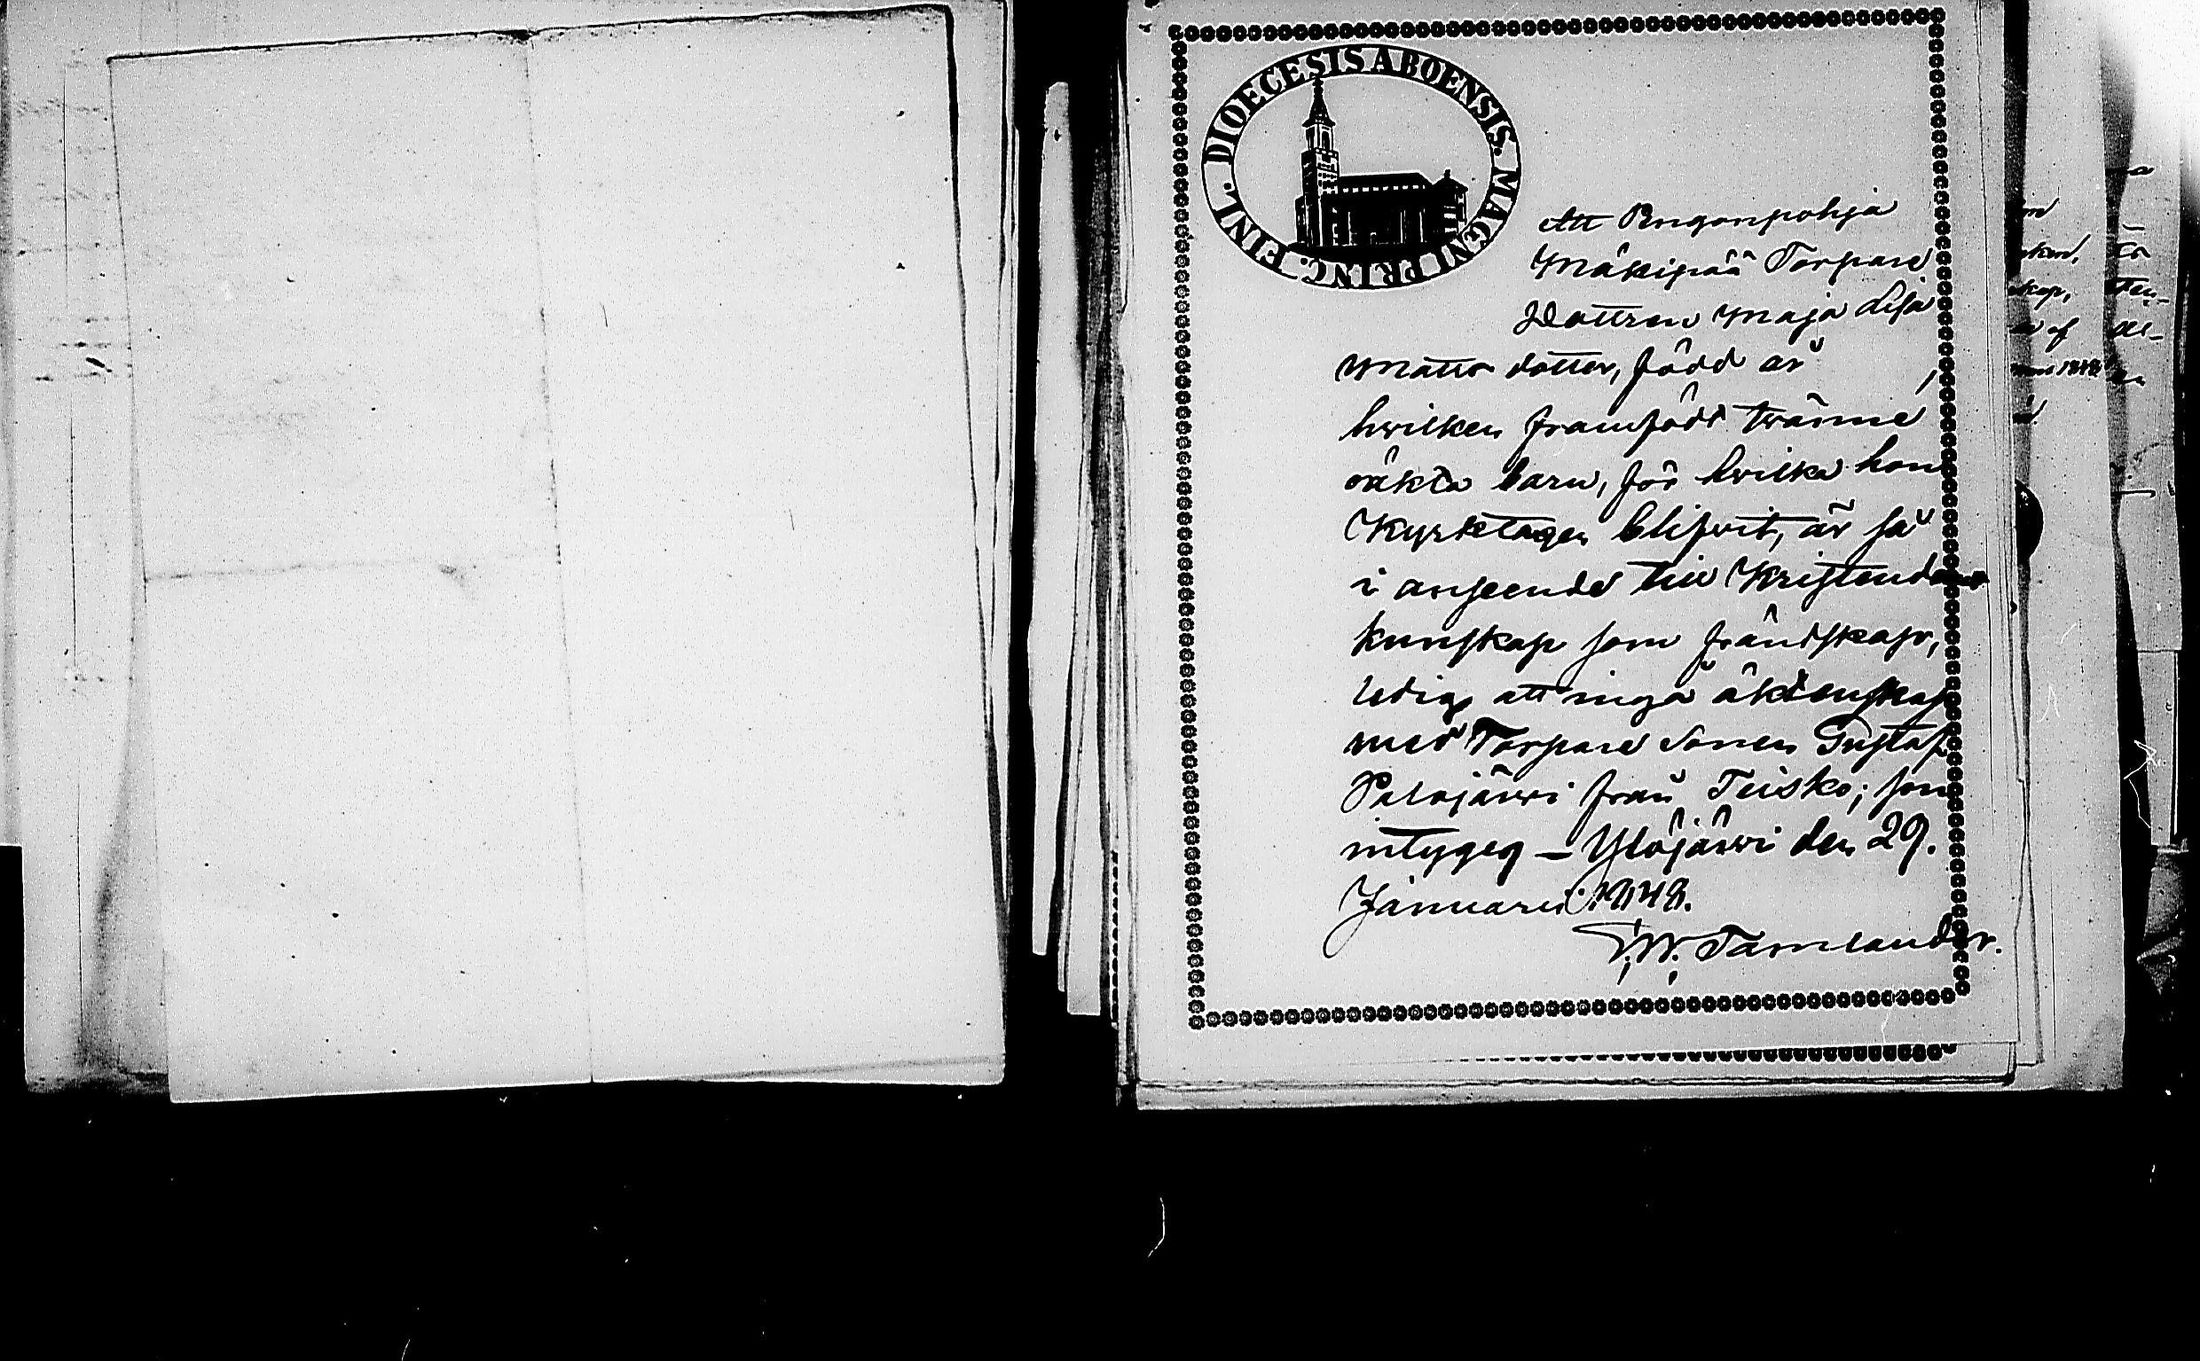 DIOECESIS ABOENSIS. MAGNI PRINC. FINL.
Att Pengonpohja
Mäkipää Torpare
Dottren Maja Lisa
Matts dotter, född år
hvilken framfödt tvänne
oäkta barn, för hvilka hon
Kyrktagen blifvit, är så
i anseende till Kristendoms
kunskap som frändskap,
ledig att ingå äktenskap
med Torpare Sonen Gustaf
Palojärvi från Teisko; som
intygeg – Ylöjärvi den 29.
Januarii 1848.
Tamlander.